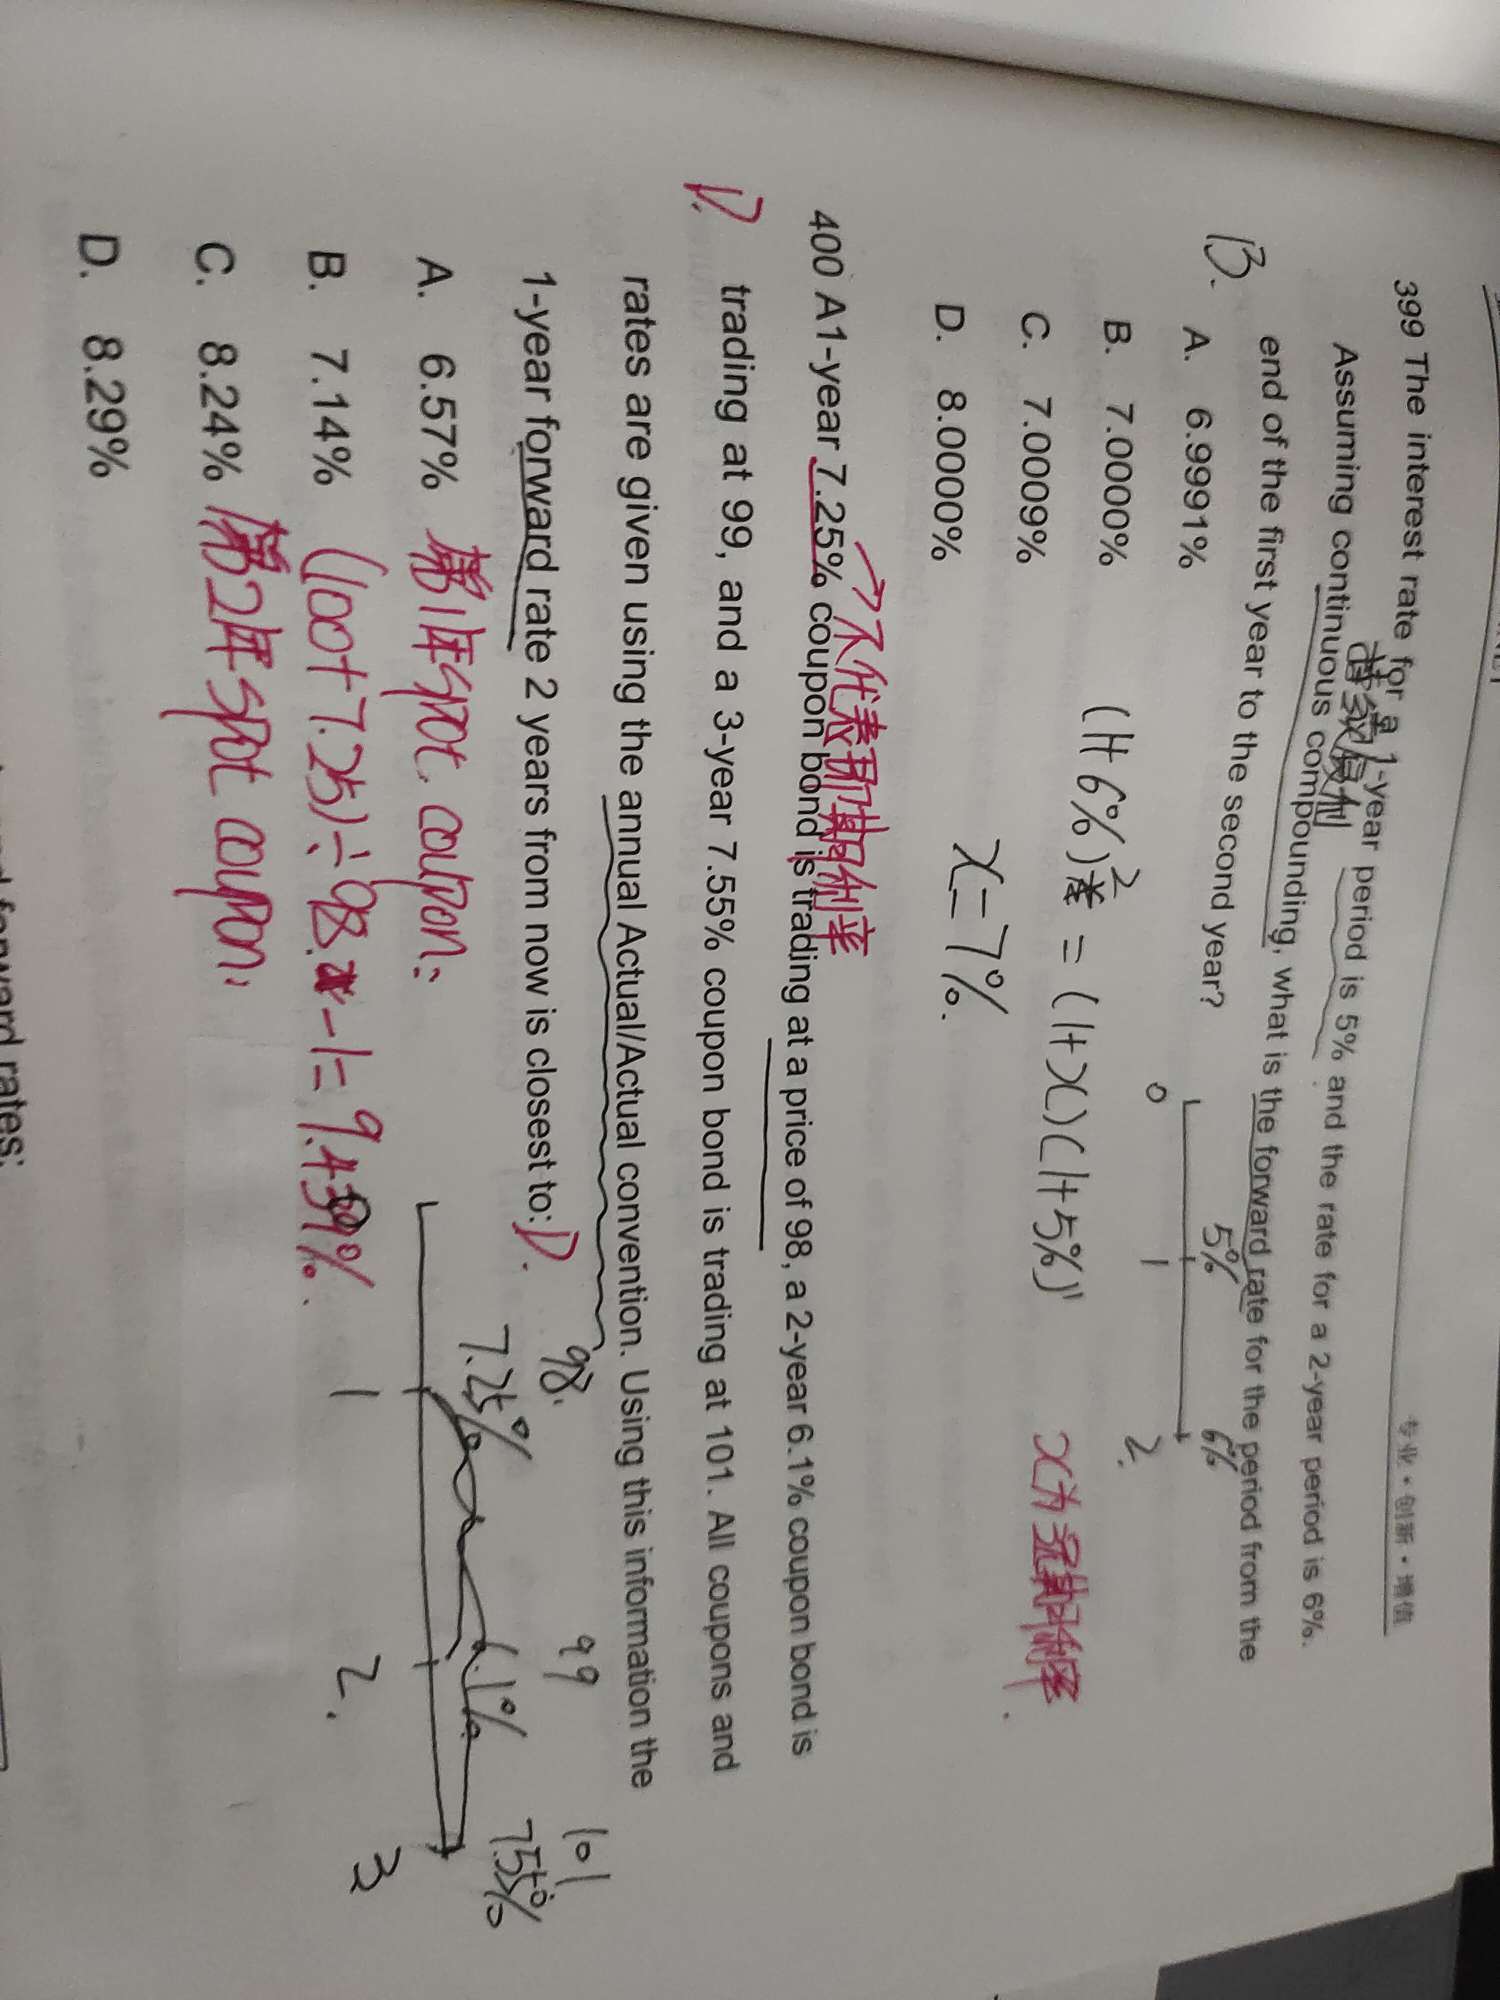 专业·创新·增值
399 The interest rate for a 1-year period is 5% and the rate for a 2-year period is 6%.
连续复利
Assuming continuous compounding, what is the forward rate for the period from the
end of the first year to the second year?
B.
A. 6.9991%
B. 7.0000%
C. 7.0009%
D. 8.0000%
0 1 2.
5% 6%
(1+6%)² = (1+x)(1+5%)¹
x=7%.
x为远期利率.
→不代表即期利率
400 A1-year 7.25% coupon bond is trading at a price of 98, a 2-year 6.1% coupon bond is
D.
trading at 99, and a 3-year 7.55% coupon bond is trading at 101. All coupons and
rates are given using the annual Actual/Actual convention. Using this information the
1-year forward rate 2 years from now is closest to: D.
98. 99 101
7.25% 6.1% 7.55%
1 2. 3
A. 6.57% 第1年spot coupon:
B. 7.14% (100+7.25)÷98-1=9.439%.
C. 8.24% 第2年spot coupon:
D. 8.29%
forward rates: